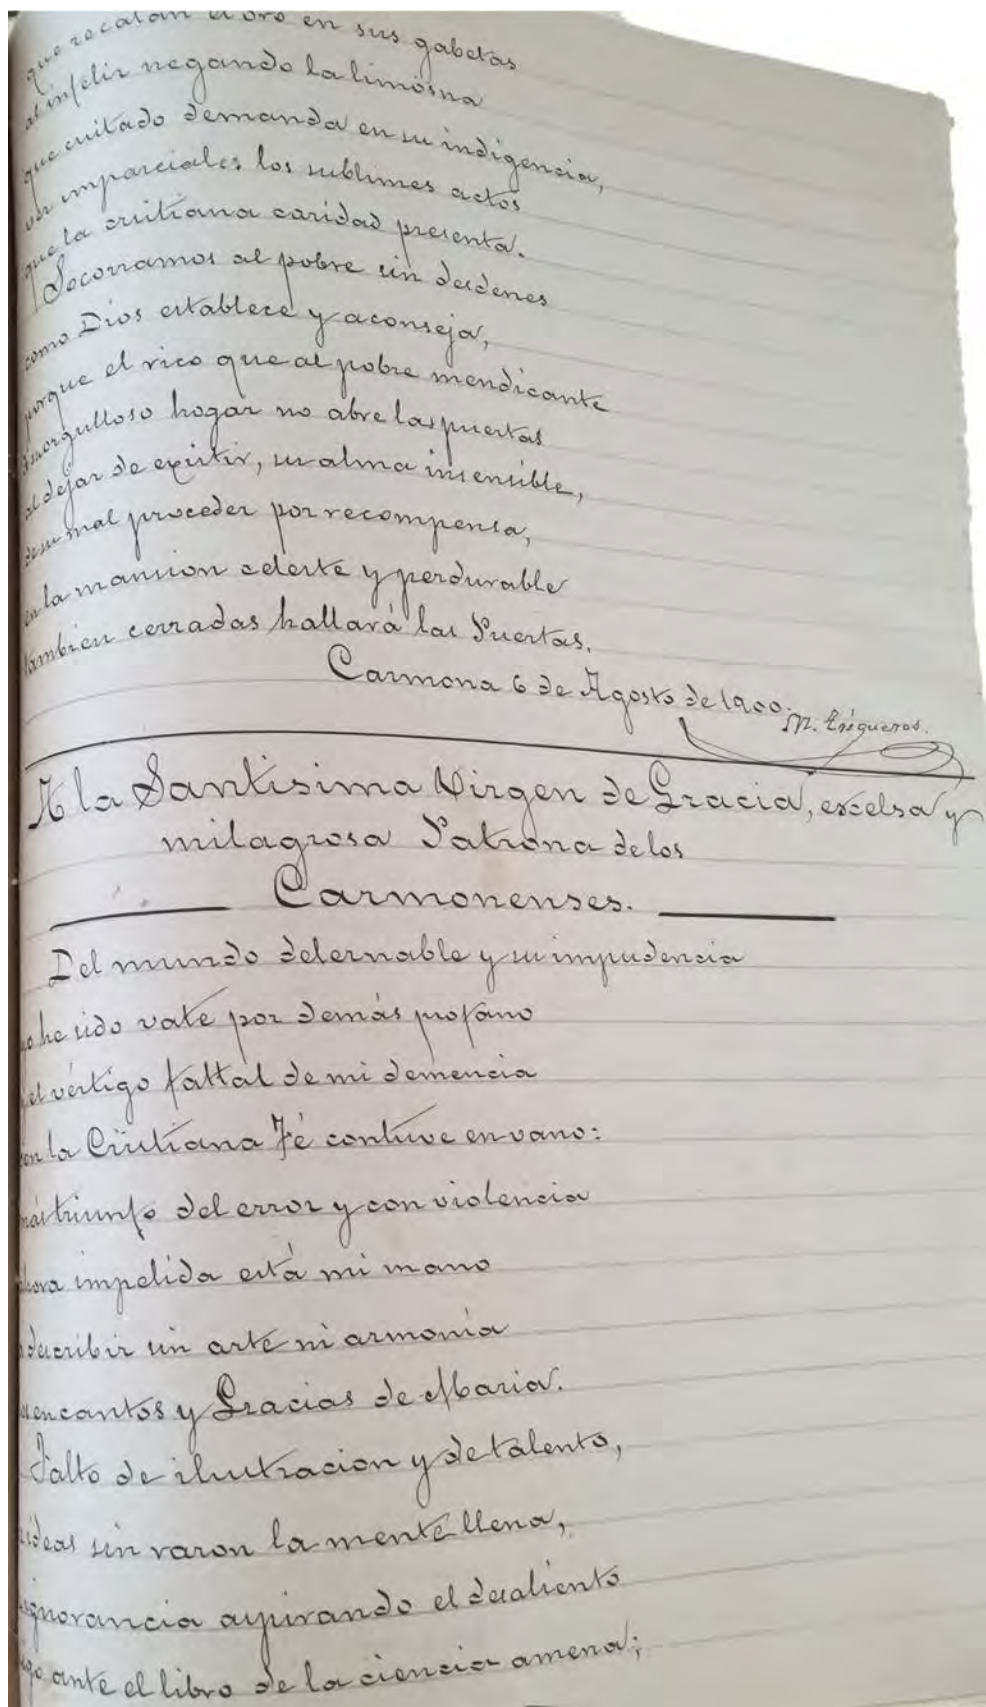 que recatan el oro en sus gabetas
al infeliz negando la limósna
que cuitado demanda en su indigencia,
ver imparciales los sublimes actos
que la cristiana caridad presenta.
Socorramos al pobre sin desdenes
como Dios establece y aconseja,
porque el rico que al pobre mendicante
orgulloso hogar no abre las puertas
al dejar de existir, su alma insensible,
de su mal proceder por recompensa,
en la mansion celeste y perdurable
tambien cerradas hallará las Puertas.
Carmona 6 de Agosto de 1900.
M. Trigueros.
A la Santisima Virgen de Gracia, excelsa y
milagrosa Patrona de los
Carmonenses.
Del mundo delernable y su impudencia
yo he sido vate por demás profano
el vértigo fattal de mi demencia
con la Cristiana Fé contuve en vano:
más triunfo del error y con violencia
ahora impelida está mi mano
describir sin arte ni armonía
encantos y Gracias de Maria.
Falto de ilustracion y de talento,
ideas sin razon la mente llena,
ignorancia aspirando el desaliento
ante el libro de la ciencia amena;